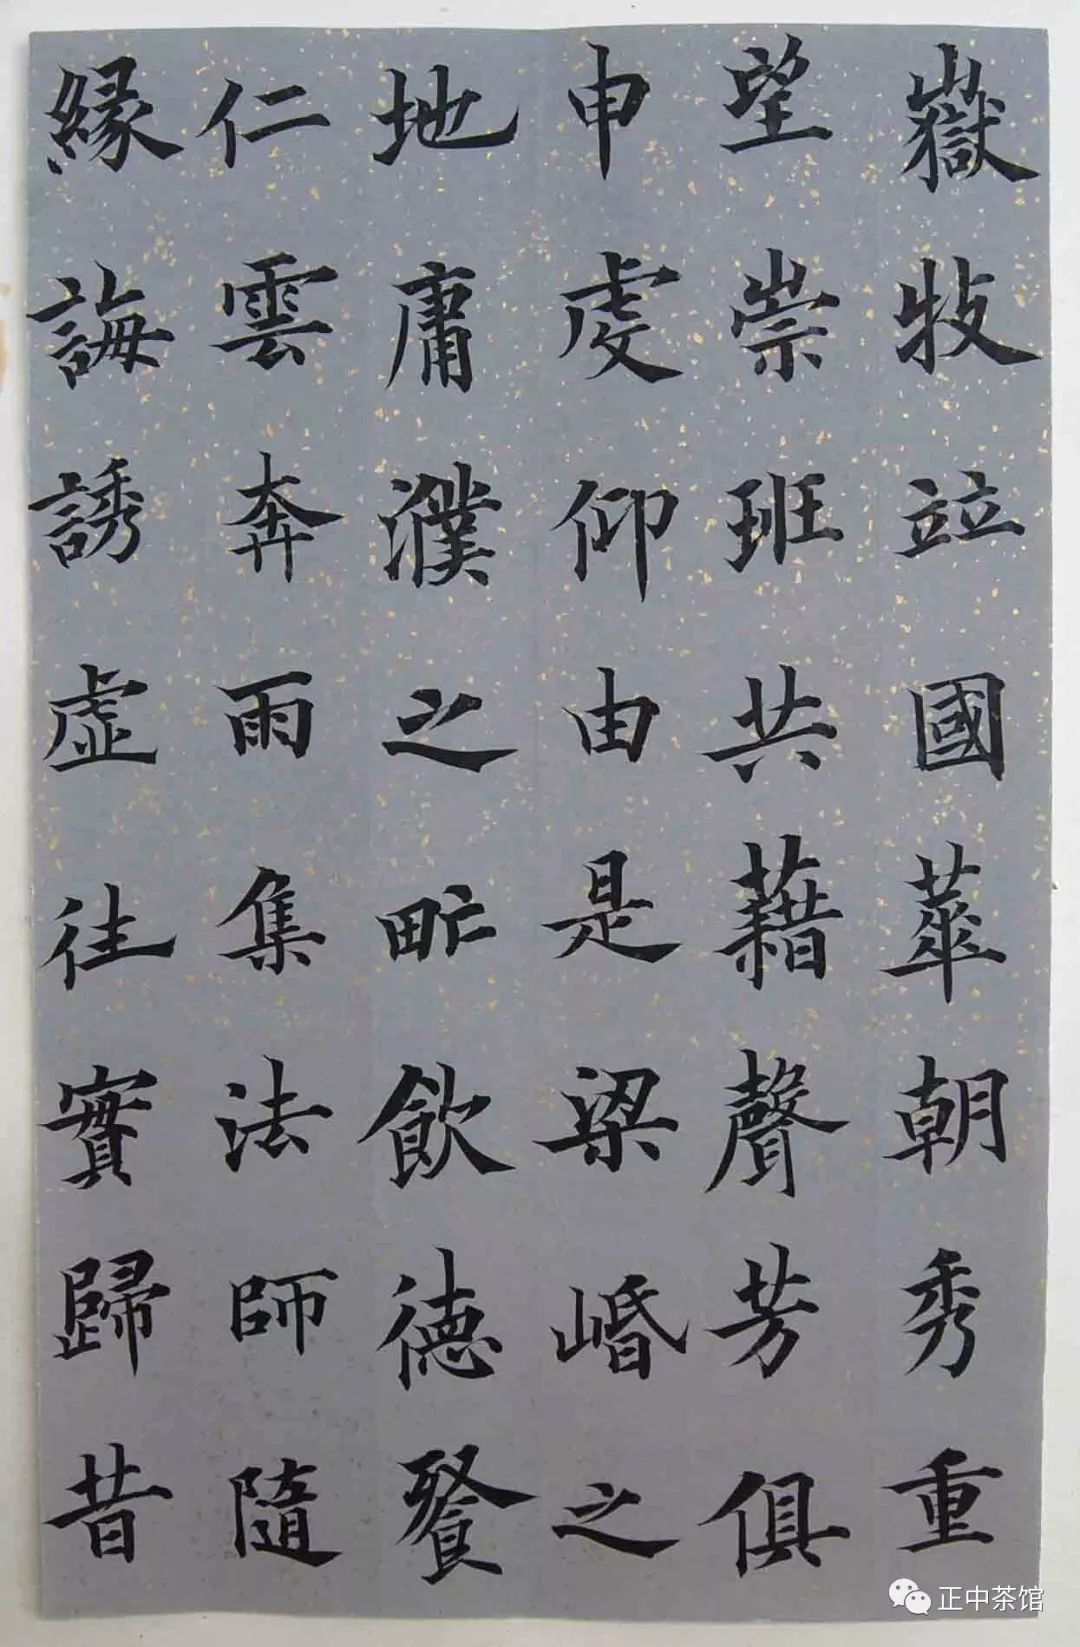 嶽牧竝國華朝秀重
望崇班共藉聲芳俱
申虔仰由是梁崏之
地庸濮之甿飲徳餐
仁雲奔雨集法師隨
縁誨誘虛往實歸昔
正中茶馆